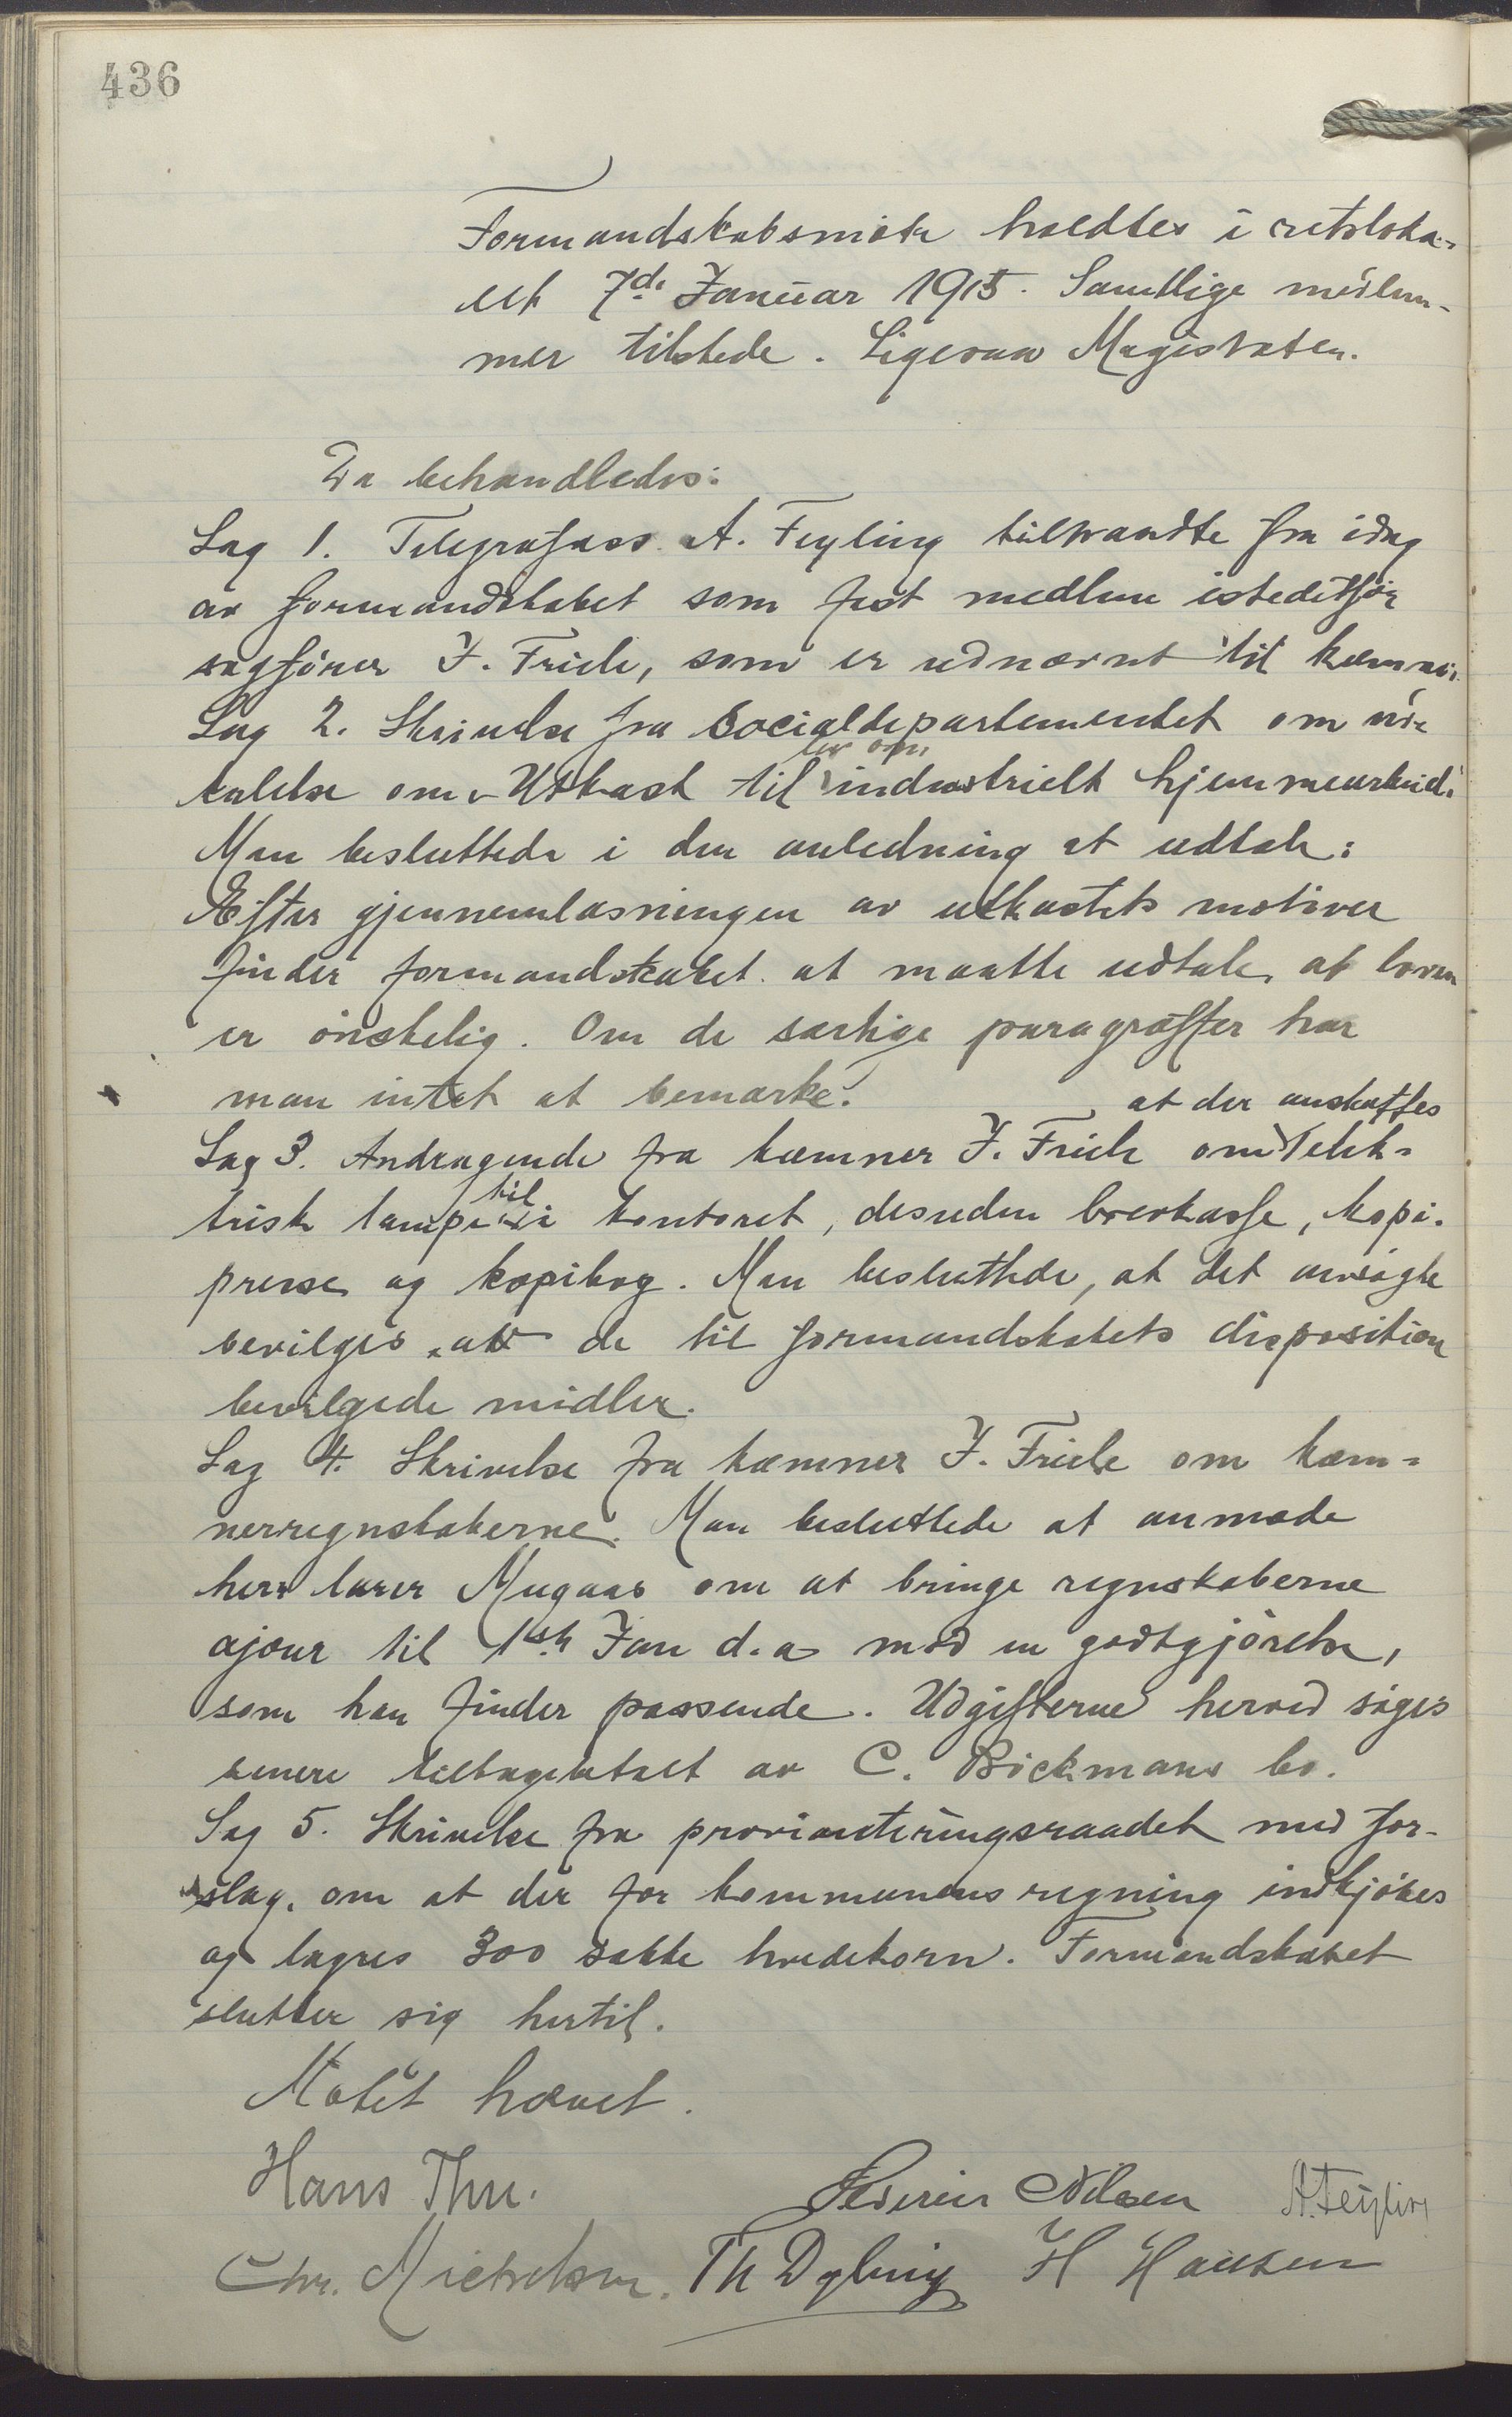 436
Formandskabsmøte holdtes i retsloka-
let 7de Januar 1915. Samtlige medlem-
mer tilstede. Ligesaa Magistraten.
Da behandledes:
Sag 1. Telegrafass. A. Feyling tiltraadte fra idag
av formandskabet som fast medlem istedetfor
sagfører J. Friele, som er udnævnt til kæmner.
Sag 2. Skrivelse fra Socialdepartementet om ut-
talelse om Utkast til lov om industrielt hjemmearbeid.
Man besluttede i den anledning at udtale:
Efter gjennemlæsningen av utkastets motiver
finder formandskabet at maatte udtale, at loven
er ønskelig. Om de særlige paragraffer har
man intet at bemærke.
Sag 3. Andragende fra kæmner J. Friele om at der anskaffes elek-
trisk lampe til kontoret, desuden brevkasse, kopi-
presse og kopibog. Man besluttede, at det ansøgte
bevilges av de til formandskabets disposition
bevilgede midler.
Sag 4. Skrivelse fra kæmner J. Friele om kæm-
nerregnskaberne. Man besluttede at anmode
herr lærer Mugaas om at bringe regnskaberne
ajour til 1ste Jan d.a mod en godtgjørelse,
som han finder passende. Udgifterne herved søges
senere tilbagebetalt av C. Bøckmans bo.
Sag 5. Skrivelse fra provianteringsraadet med for-
slag, om at der for kommunens regning indkjøbes
og lagres 300 sække hvedekorn. Formandskabet
slutter sig hertil.
Møtet hævet.
Hans Thu. Severin Nilsen A. Feyling
Chr. Michelsen. Th Dybing H Hansen